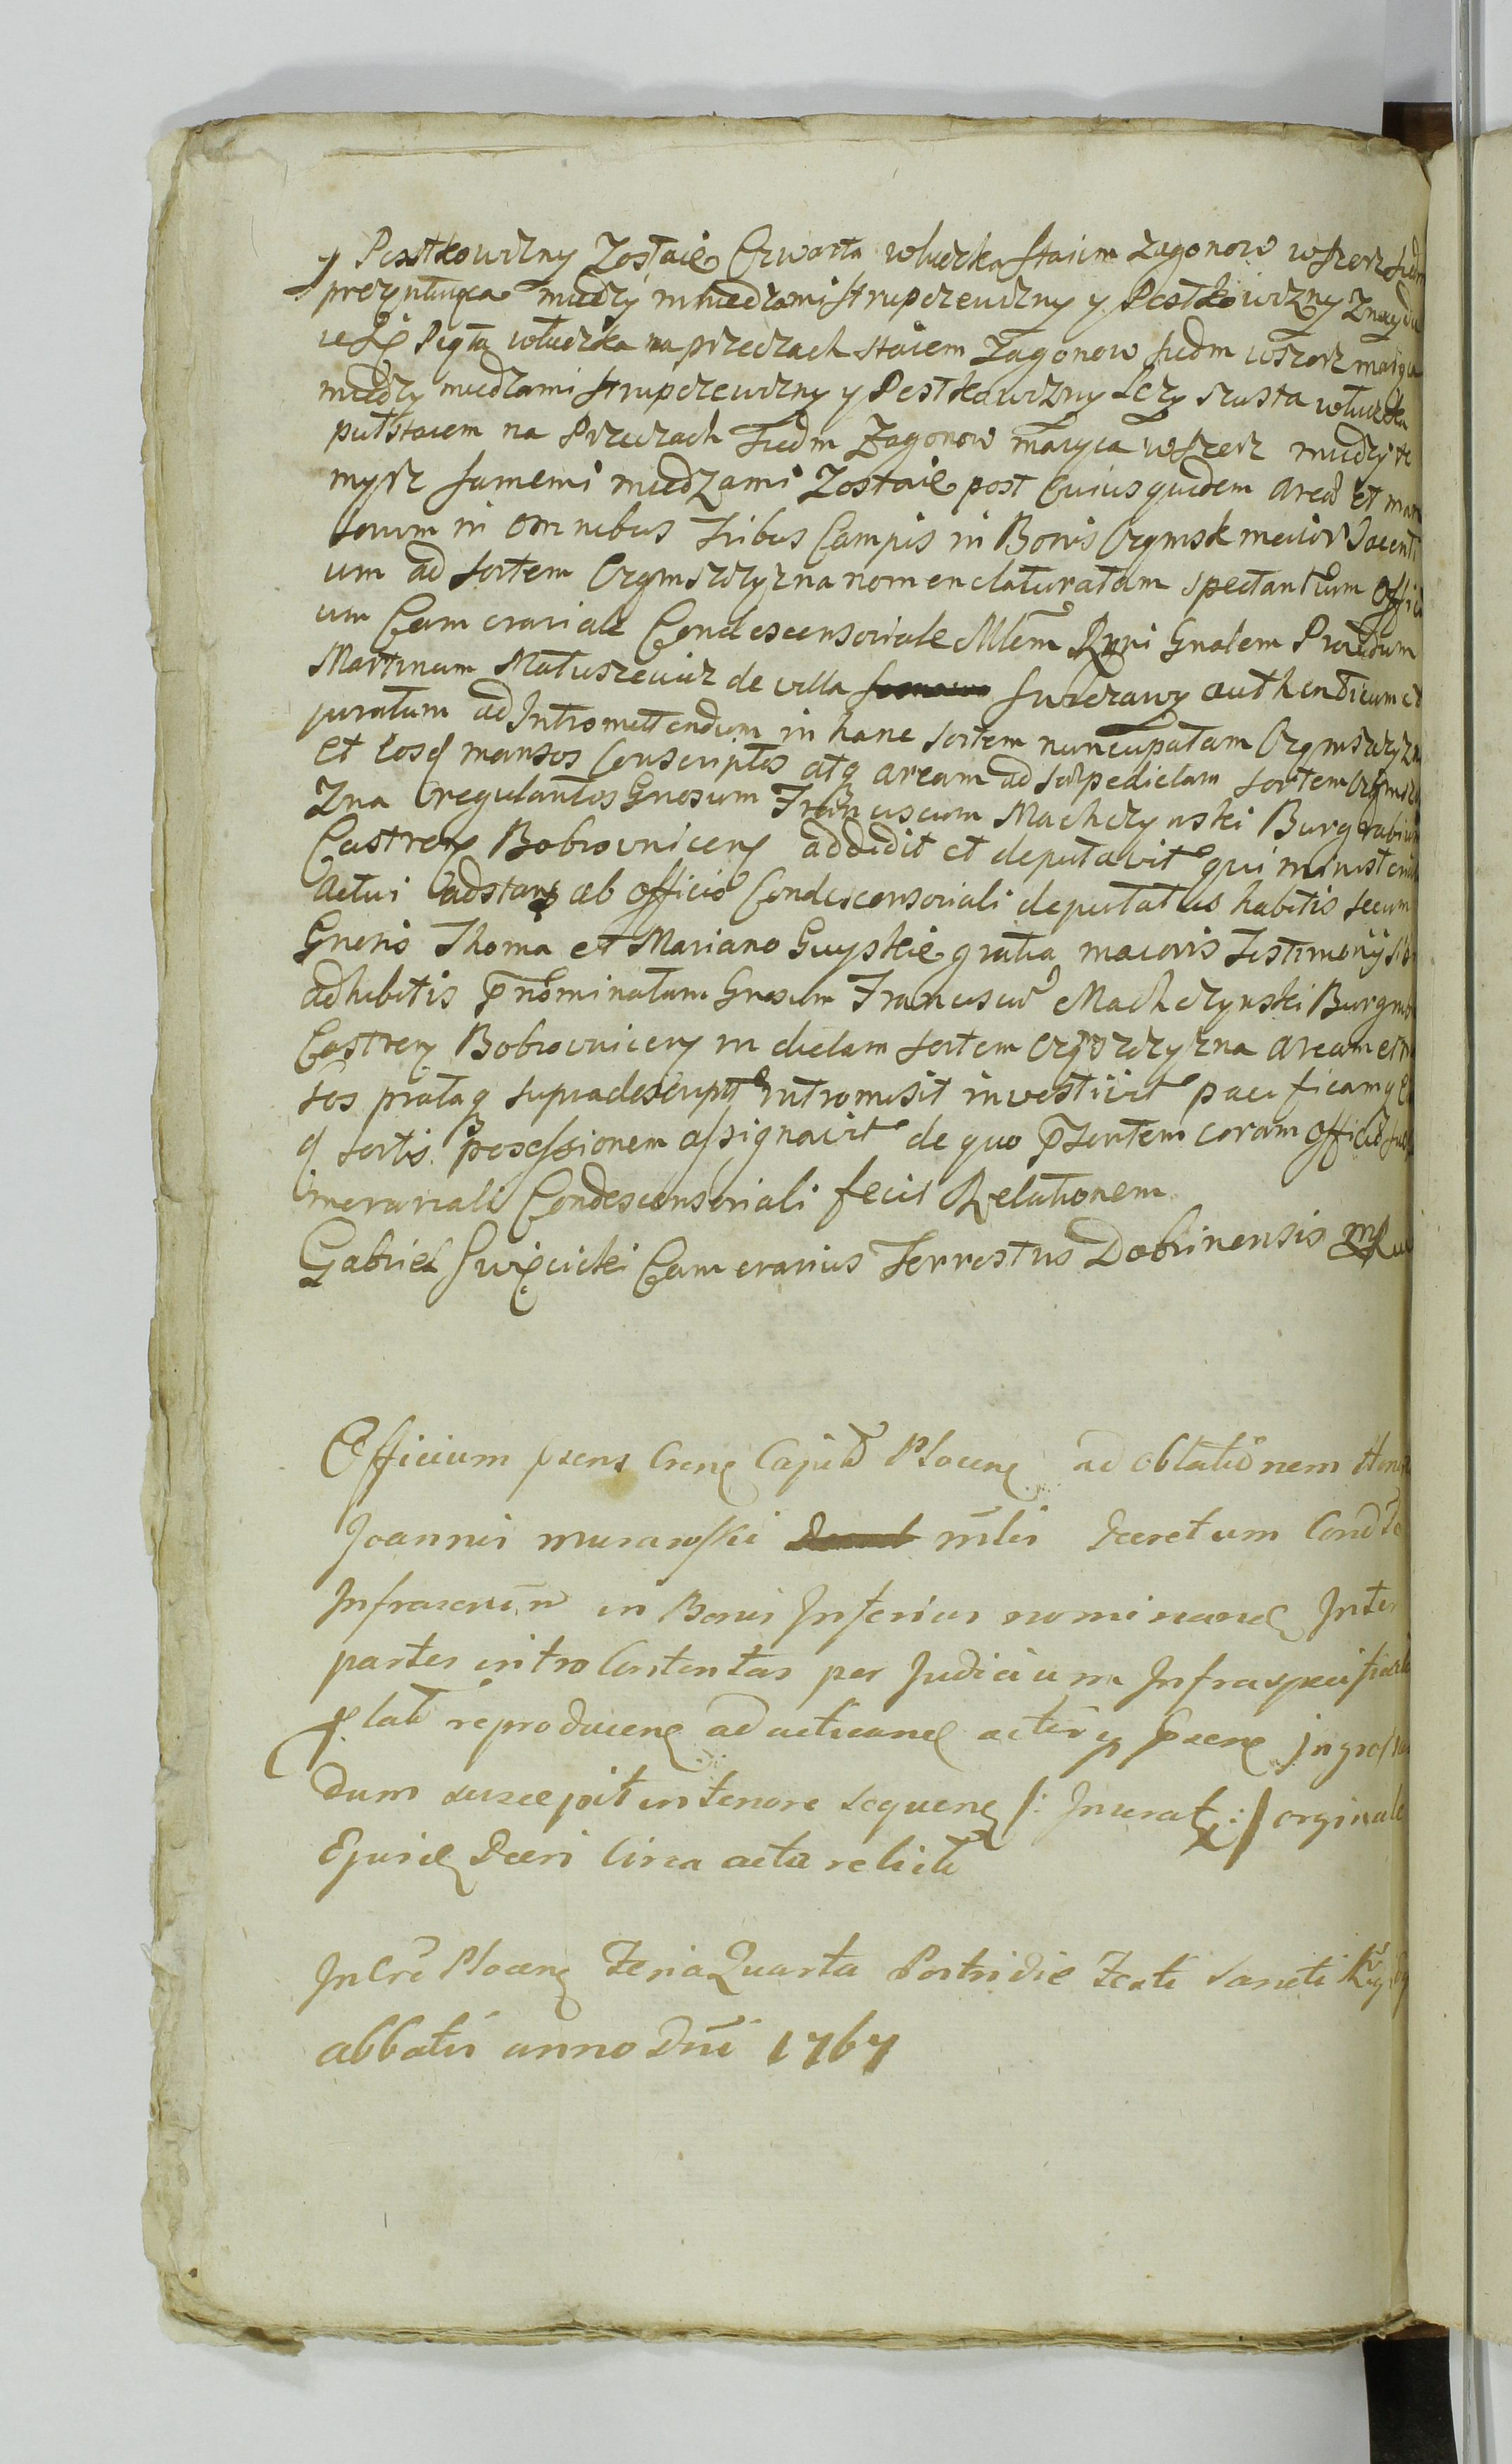 y Pestkowizny Zostaie Czwarta włuczka staiem zagonow wszerz siedm
prezentuiąca miedzy miedzami Strupczewizny y Pestkowizny Znayduie
się Piąta włuczka na przeczach staiem Zagonow siedm wszerz maiąca
miedzy miedzami Strupczewizny y Pestkowizny Leży szusta włuczka
pułstaiem na Przeczach siedm Zagonow maiąca wszerz miedzy te
mysz samemi miedzami Zostaie post Cuius quidem areae et man
sorum in omnibus Tribus Campis in Bonis Czymsk maior Jacenti
um ad sortem Czymszczyzna nomenclaturatam spectantium Offici
um Camerariale Condescensoriale Mlem Regni Gnalem Providum
Martinum Matuszewicz de villa Suszerawy authenticum et
juratum ad Intromittendum in hanc sortem nuncupatam Czymszczyzn
Et eosq mansos Conscriptos atq aream ad supedictam sortem Czymszczy
zna Cregulantos Gnosum Franciscum Machczynski Burgrabium
Castren Bobrovnicen addidit et deputavit qui ministerial
actui adstans ab officio Condescensoriali deputatus habitis secum
Gneris Thoma et Mariano Guyskie gratia maioris Testimonij sibi
adhibitis pnominatum Gnosum Franciscum Machczynski Burgrab
Castren Bobrovnicen in dictam sortem Czymszczyzna aream et man
sos prataq supradescripta intromisit investivit pacificamq E
q sortis possessionem assignavit de quo psentem coram officio suo Ca
merariali Condescensoriali fecit Relationem
Gabriel Święcicki Camerarius Terrestris Dobrinensis mp

Officium psens Crense Capitle Plocen ad oblationem Hon
Joannis Murawski mlis Decretum Condes
Infrascrim in Bonis Inferius nominand Inter
partes intro Contentas per Judicium Infraspecificat
p lati reproducen ad acticand actisq psen ingrossan
dum suscepit in tenore sequen /: Inserat :/ orginale
Ejusd Decri Circa acta relicto

In Cro Plocen Feria Quarta Postridie Festi Sancti
abbatis anno Dni 1767